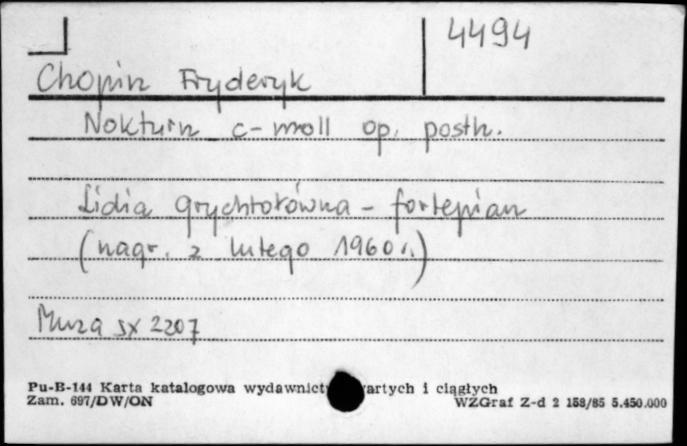 4494
Chopin Fryderyk
Nokturn c-moll op. posth.
Lidia Grychtołówna - fortepian
(nagr. z lutego 1960 r.)
Muza SX 2207
Pu-B-144 Karta katalogowa wydawnict wartych i ciągłych
Zam. 697/DW/ON
WZGraf Z-d 2 158/85 5.450.000